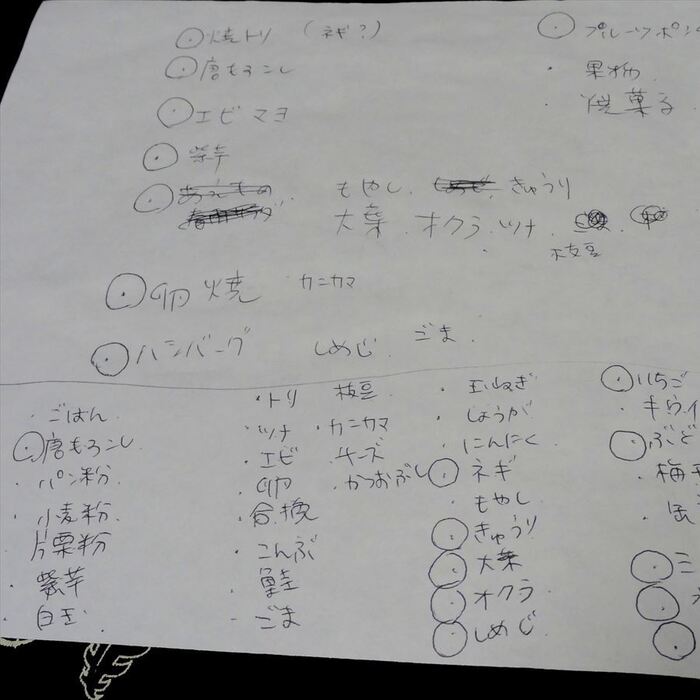 焼トリ (ネギ?)
唐もろこし
エビマヨ
紫芋
もやし. きゅうり
大葉. オクラ. ツナ.
枝豆
卵焼 カニカマ
ハンバーグ しめじ. ごま.
フルーツポン
・果物
・焼菓子
・ごはん
唐もろこし
・パン粉
・小麦粉
・片栗粉
・紫芋
・白玉
・トリ
・ツナ
・エビ
・卵
・合挽
・こんぶ
・鮭
・ごま
枝豆
・カニカマ
・チーズ
・かつおぶし
・玉ねぎ
・しょうが
・にんにく
ネギ
・もやし
きゅうり
大葉
オクラ
しめじ
いちご
キウイ
ぶど
梅
缶
ミ